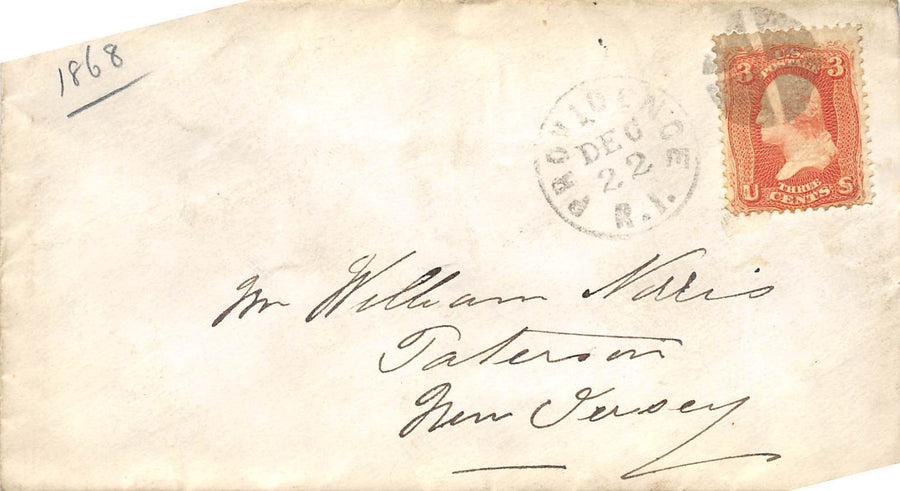 1868
PROVIDENCE
DEC
22
R.I.
3 3
U.S.
POSTAGE
U S
THREE
CENTS
Mr William Norris
Paterson
New Jersey